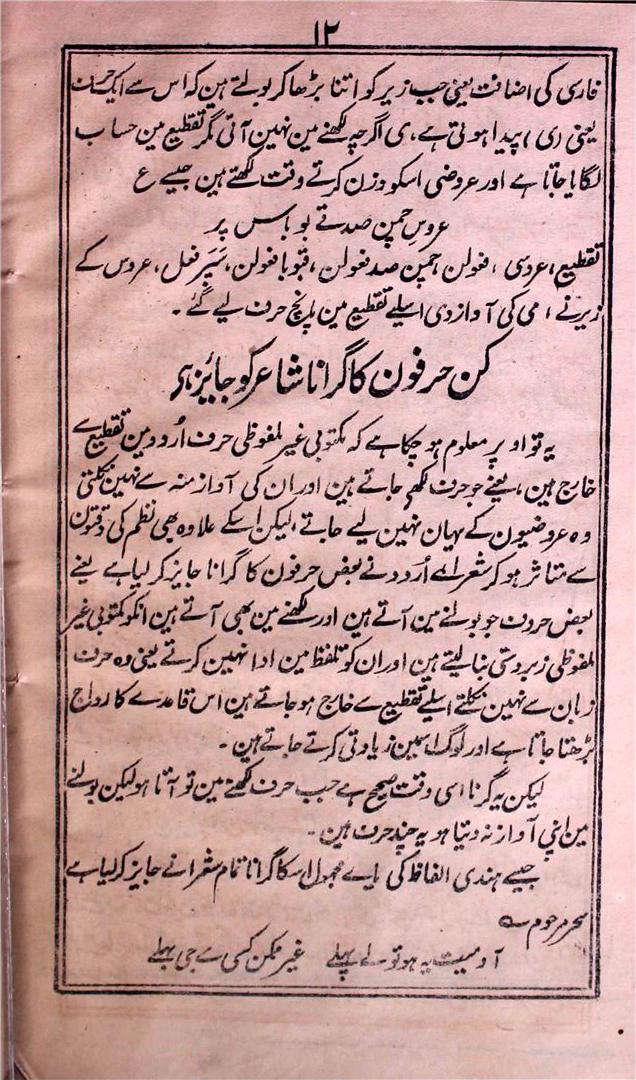 ۱۲
فارسی کی اضافت یعنی جب زیر کو اتنا بڑھا کر بولتے ہین کہ اس سے ایک حرف
یعنی (ی) پیدا ہوتی ہے، ی اگرچہ لکھنے مین نہین آتی مگر تقطیع مین حساب
لگایا جاتا ہے اور عروضی اسکو وزن کرتے وقت لکھتے ہین جیسے ع
عروسِ چمن صدقے بو باس پر
تقطیع، عروسی، فعولن، چمن صد فعولن، قبوبا فعولن، سَپَر فعل، عروس کے
زیر نے، می کی آواز دی اسلیے تقطیع مین پانچ حرف لیے گئے۔
کن حرفون کا گرانا شاعر کو جائز ہر
یہ تو اوپر معلوم ہو چکا ہے کہ مکتوبی غیر ملفوظی حرف اُردو مین تقطیع سے
خارج ہین، یعنے جو حرف لکھے جاتے ہین اور ان کی آواز منہ سے نہین نکلتی
وہ عروضیون کے یہان نہین لیے جاتے، لیکن اسکے علاوہ بھی نظم کی دقتون
سے متاثر ہو کر شعراے اُردو نے بعض حرفون کا گرانا جایز کر لیا ہے یعنے
بعض حروف جو بولنے مین آتے ہین اور لکھنے مین بھی آتے ہین انکو مکتوبی غیر
ملفوظی زبردستی بنا لیتے ہین اور ان کو تلفظ مین ادا نہین کرتے یعنی وہ حرف
زبان سے نہین نکلتے اسلیے تقطیع سے خارج ہو جاتے ہین اس قاعدے کا رواج
بڑھتا جاتا ہے اور لوگ اسمین زیادتی کرتے جاتے ہین۔
لیکن یہ گرنا اسی وقت صحیح ہے جب حرف لکھنے مین تو آتا ہو لیکن بولنے
مین اپنی آواز نہ دیتا ہو یہ چند حرف ہین۔
جیسے ہندی الفاظ کی یاے مجہول اسکا گرانا تمام شعرا نے جایز کر لیا ہے
سحر مرحوم ؎
آدمیت یہ ہو تو لے پہلے غیر ممکن کسی سے جی بہلے